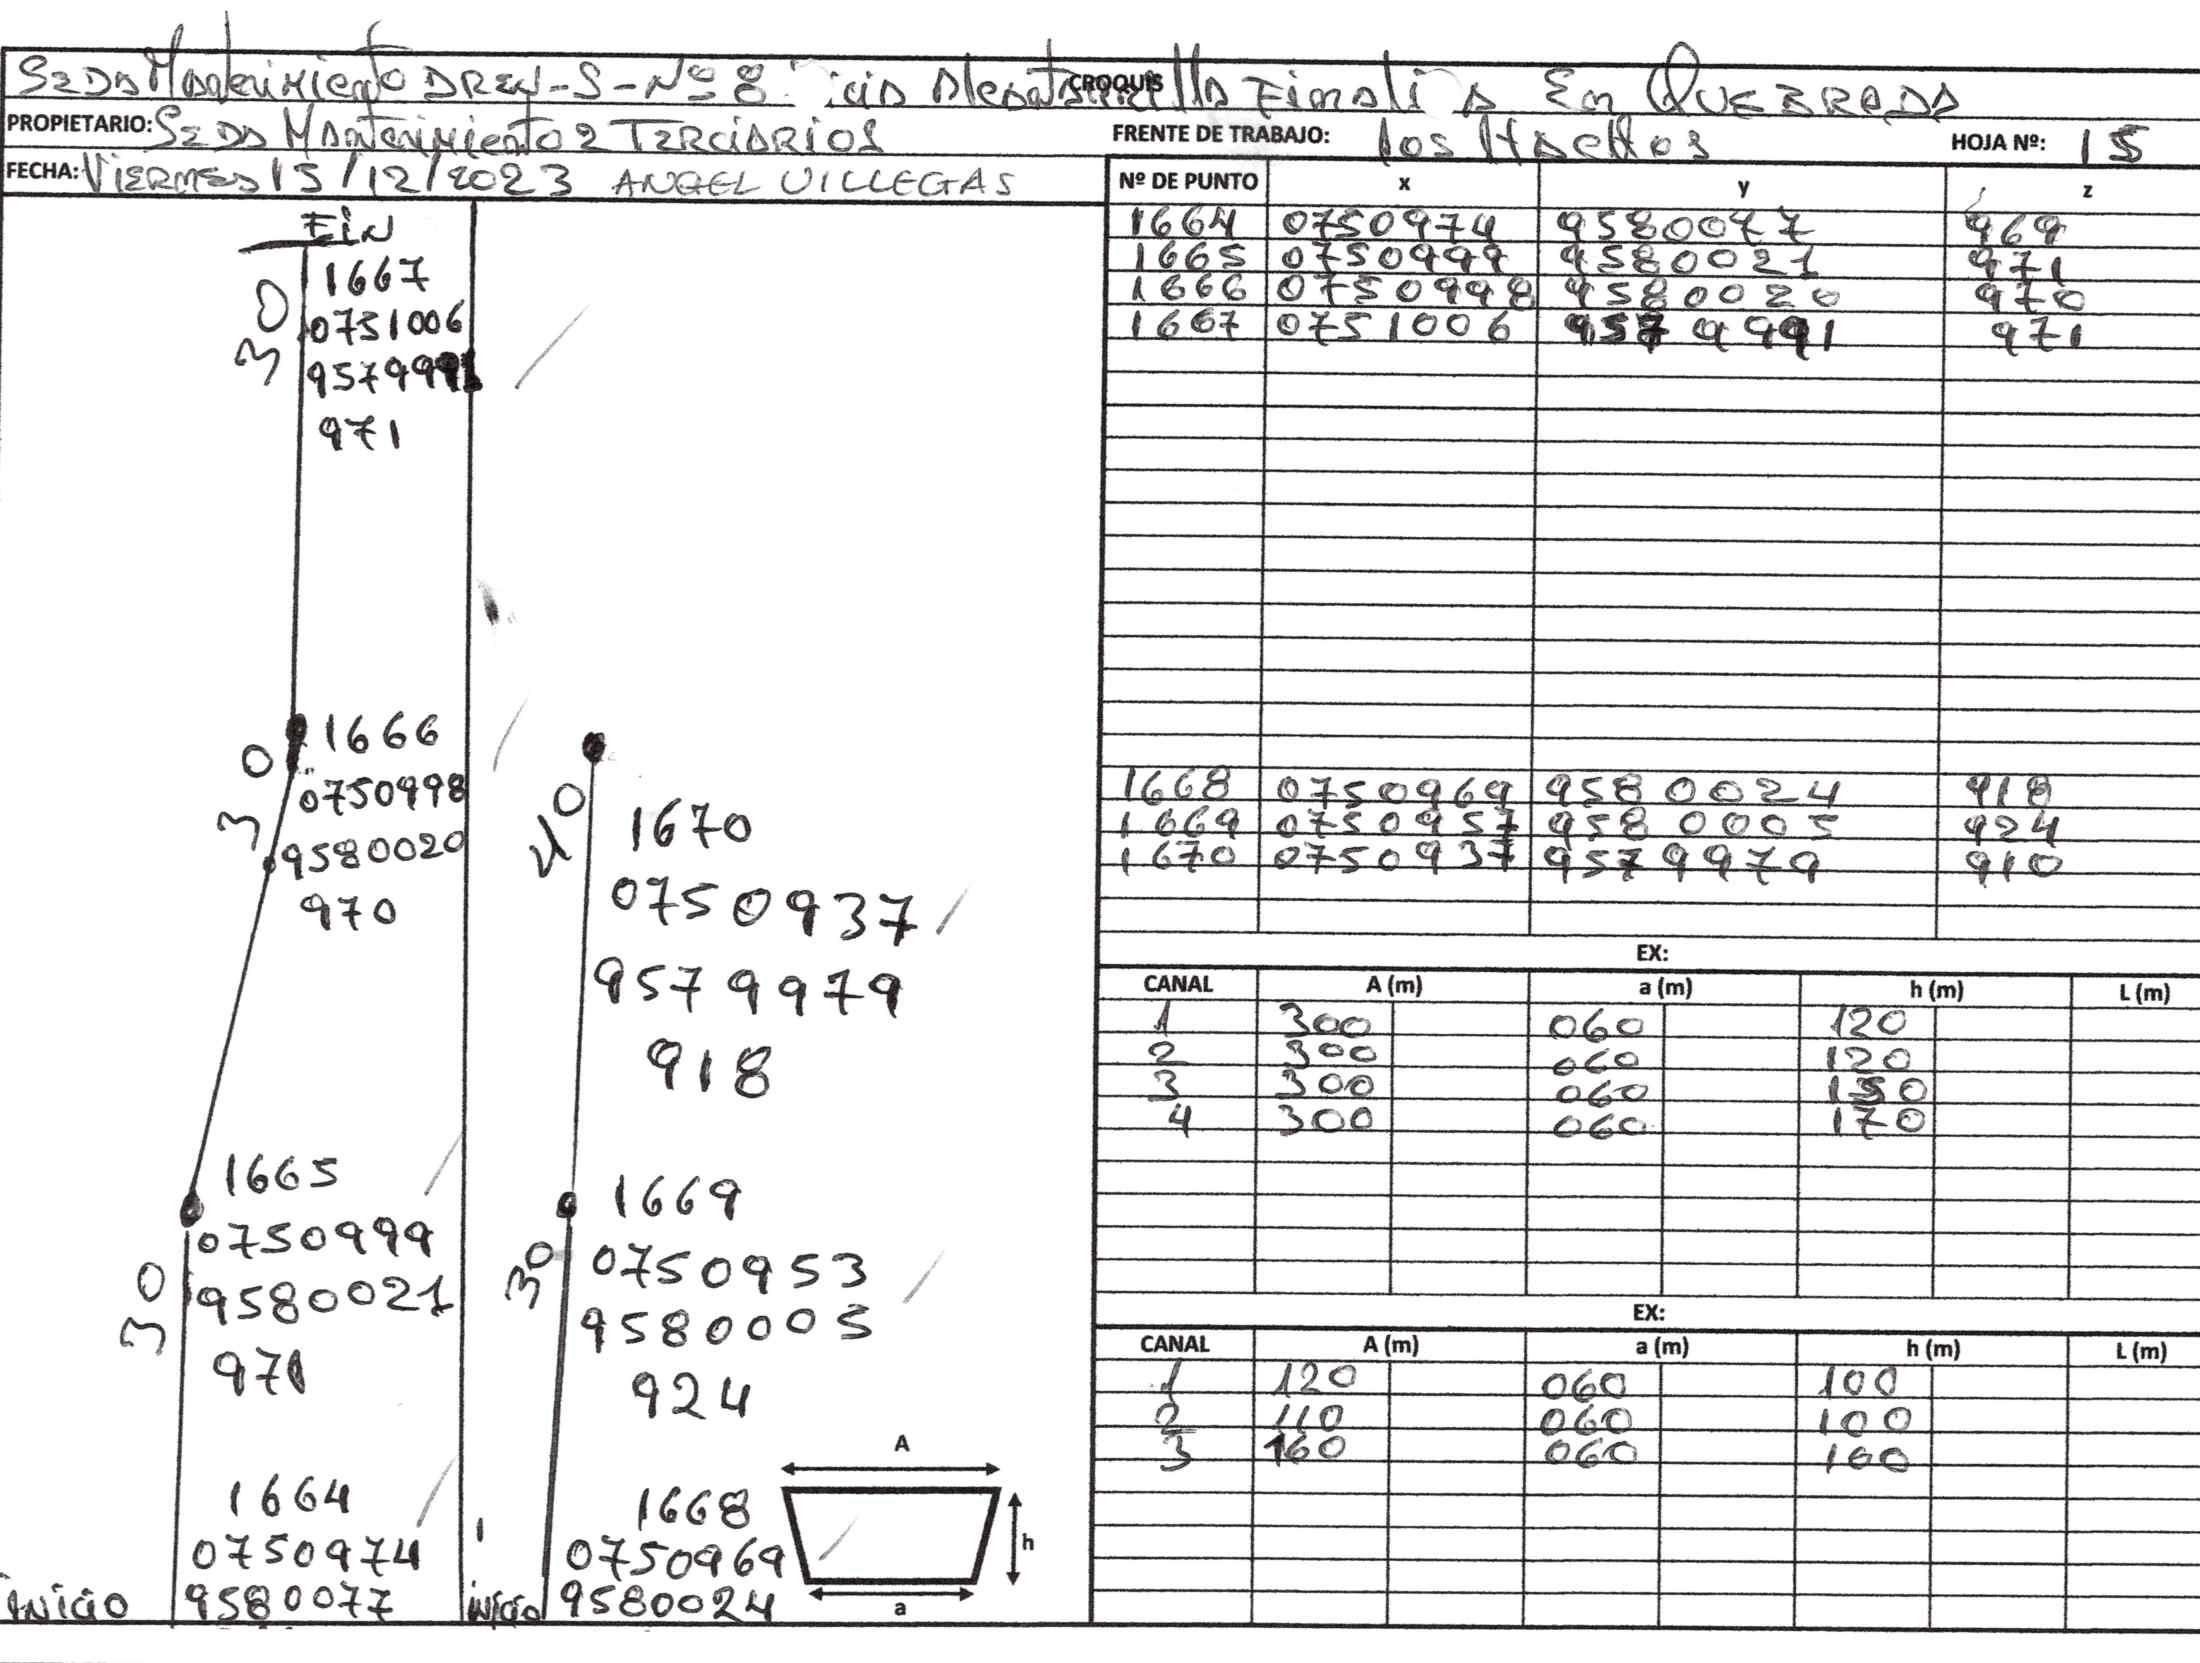 CROQUIS
Mantenimiento DREN-S-Nº 8 Finaliza En QUEBRADA
PROPIETARIO: Mantenimiento 2 TERCIARIOS
FRENTE DE TRABAJO: los
HOJA Nº: 15
FECHA: VIERNES 15/12/2023 ANGEL VILLEGAS
Nº DE PUNTO x y z
1664 0750974 9580077 969
1665 0750999 9580021 971
1666 0750998 9580020 970
1667 0751006 9579991 971
1668 0750969 9580024 918
1669 0750957 9580005 924
1670 0750937 9579979 910
EX:
CANAL A (m) a (m) h (m) L (m)
1 300 060 120
2 300 060 120
3 300 060 150
4 300 060 170
EX:
CANAL A (m) a (m) h (m) L (m)
1 120 060 100
2 110 060 100
3 160 060 100
FIN
1667
30
0751006
9579991
971
1666
30
0750998
9580020
970
1665
30
0750999
9580021
971
1664
0750974
inicio 9580077
40
1670
0750937
9579979
918
1669
30
0750953
9580005
924
1668
0750969
inicio 9580024
A
h
a